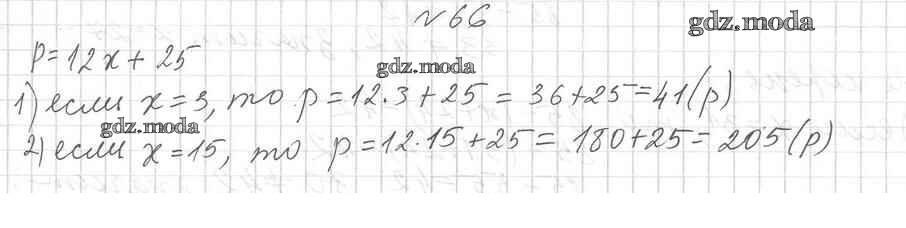 №66
gdz.moda
p=12x+25
gdz.moda
1) если x=3, то p=12·3+25=36+25=41(р)
gdz.moda
2) если x=15, то p=12·15+25=180+25=205(р)